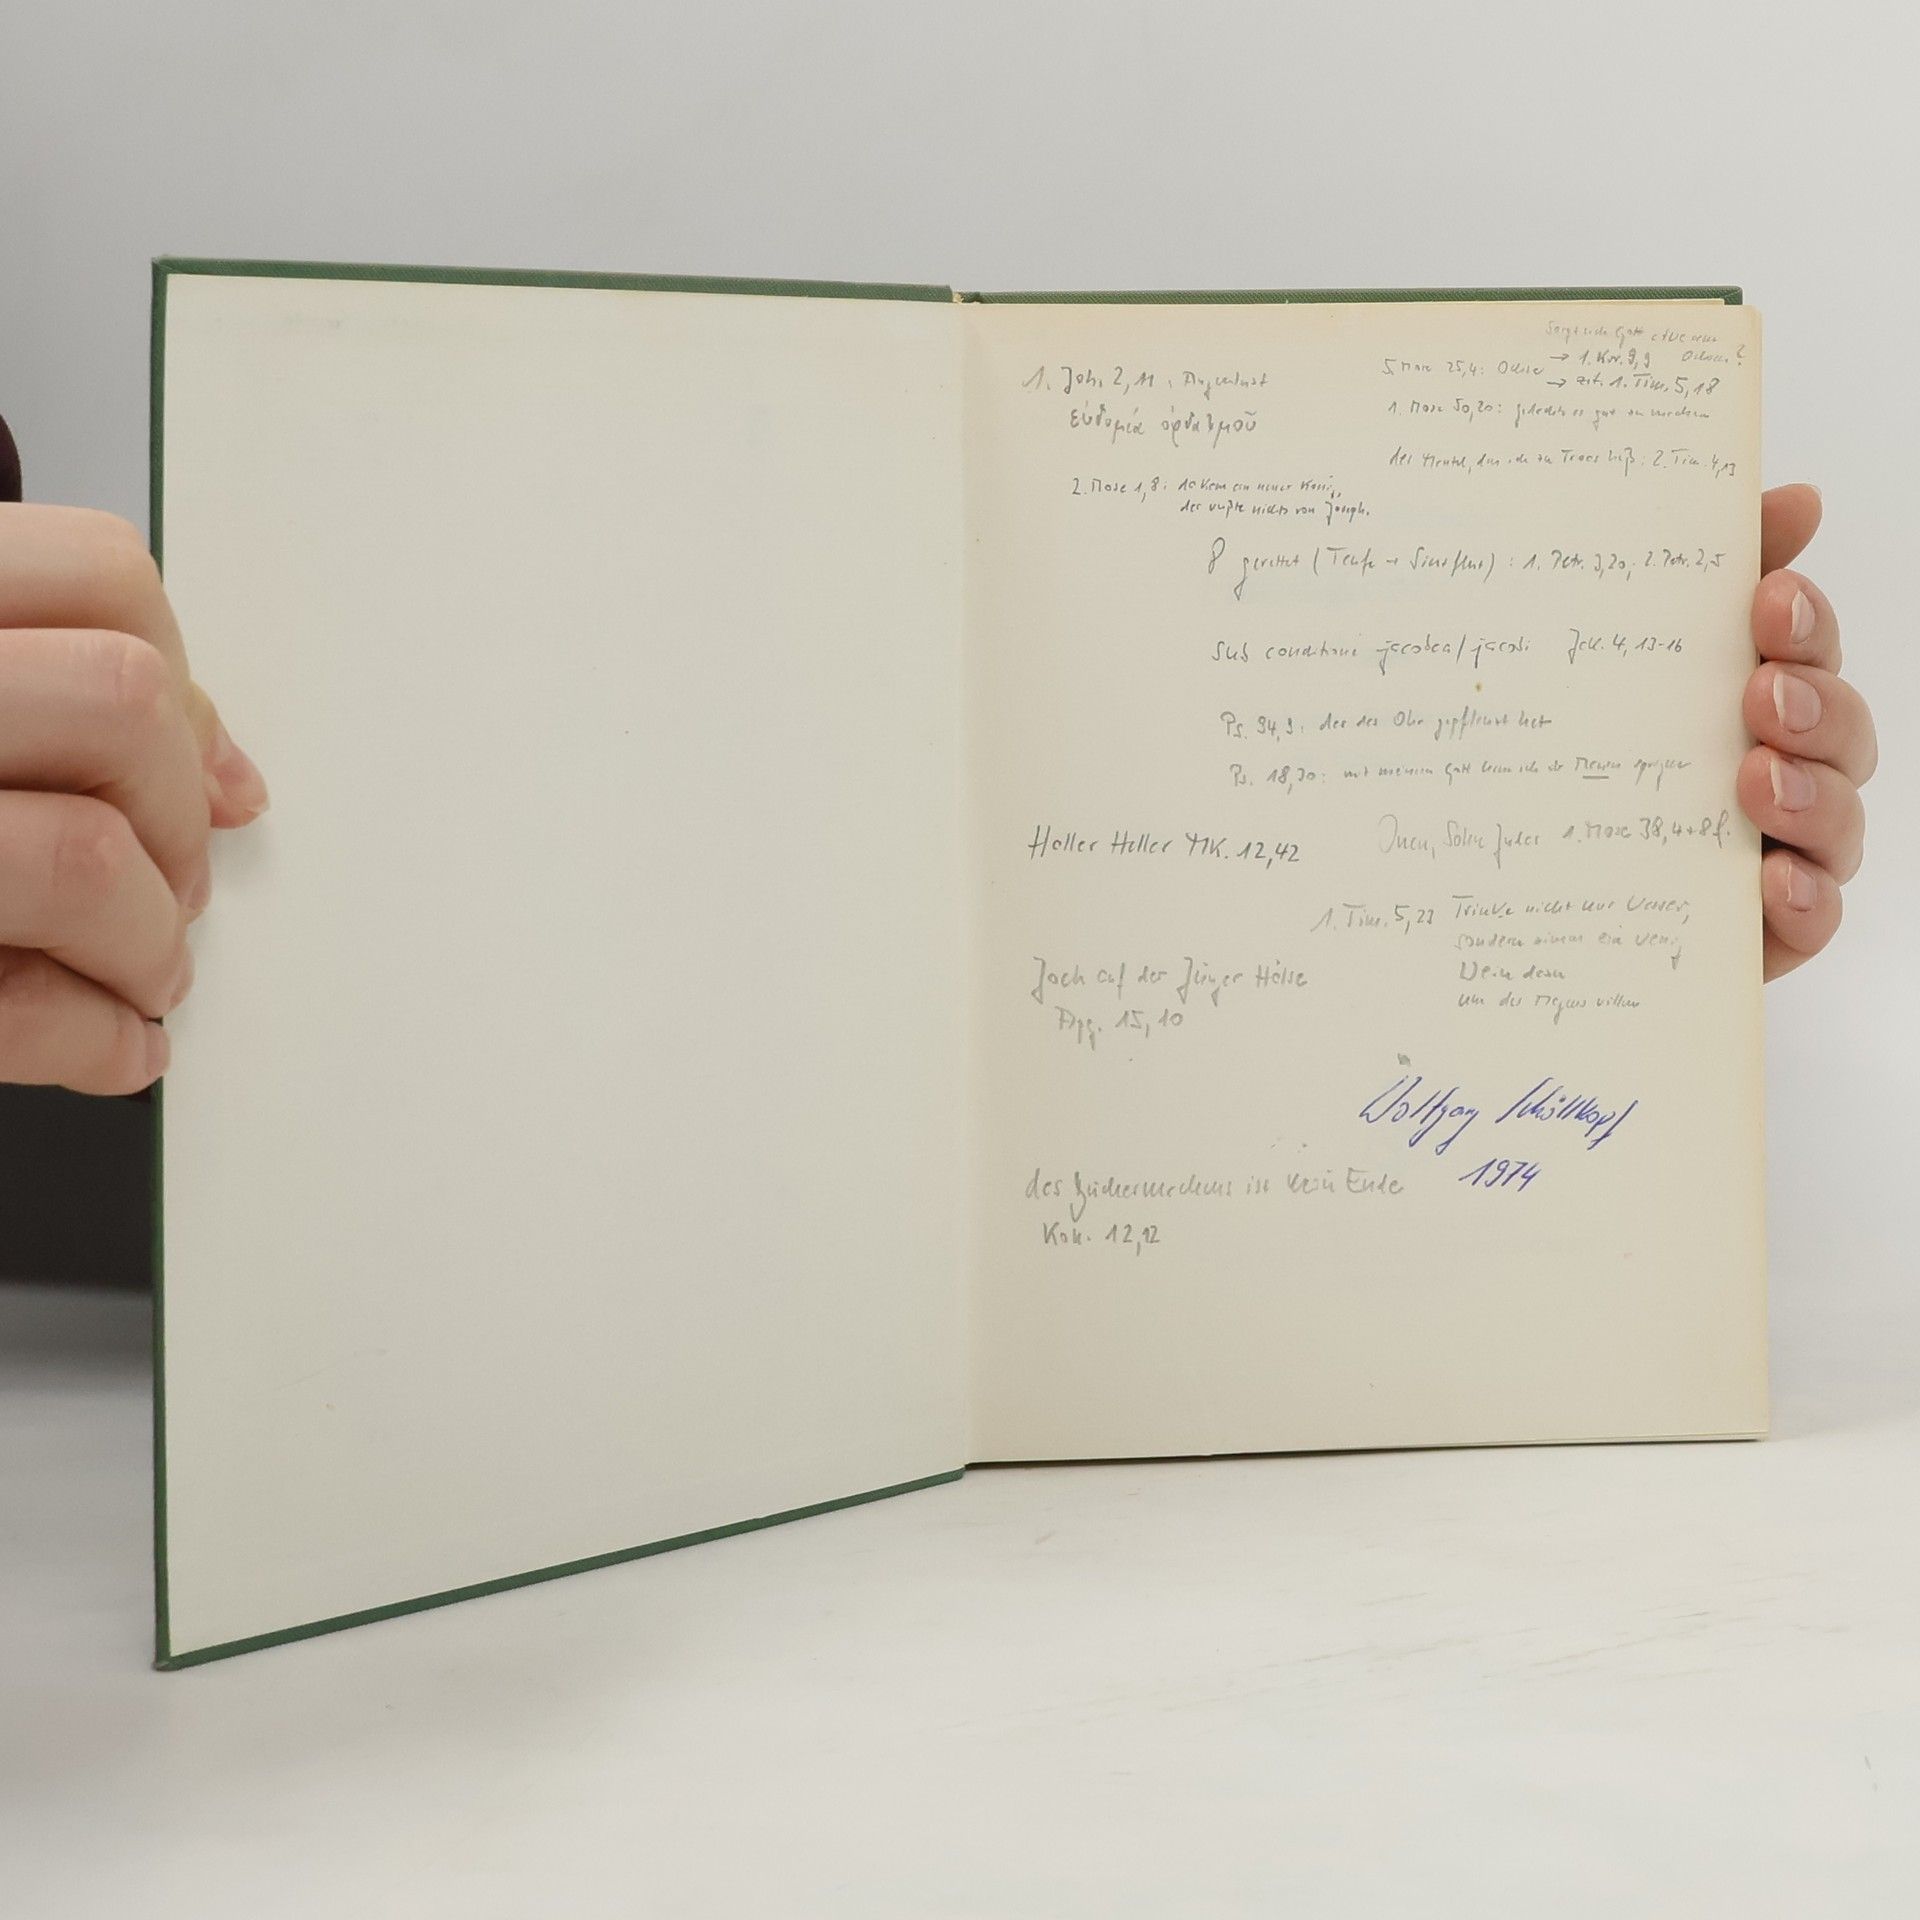 Sorgt sich Gott etwa um
5. Mose 25,4: Ochse → 1. Kor. 9,9 Ochsen?
→ zit. 1. Tim. 5,18
1. Joh. 2,11: Augenlust
ὀφθαλμοῦ
1. Mose 50,20: gedachte es gut zu machen
der Mantel, den ich zu Troas ließ: 2. Tim. 4,13
2. Mose 1,8: da kam ein neuer König,
der wußte nichts von Joseph.
8 gerettet (Taufe → Sintflut): 1. Petr. 3,20; 2. Petr. 2,5
Sub conditione jacobea/jacobi Jak. 4, 13-16
Ps. 94,9: der das Ohr gepflanzt hat
Ps. 18,30: mit meinem Gott kann ich über Mauern springen
Heller Heller MK. 12,42
Onan, Sohn Judas 1. Mose 38, 4+8f.
1. Tim. 5,23 Trinke nicht nur Wasser,
sondern nimm ein wenig
Wein dazu
um des Magens willen
Joch auf der Jünger Hälse
Apg. 15, 10
Wolfgang Schöllkopf
1974
des Büchermachens ist kein Ende
Koh. 12,12